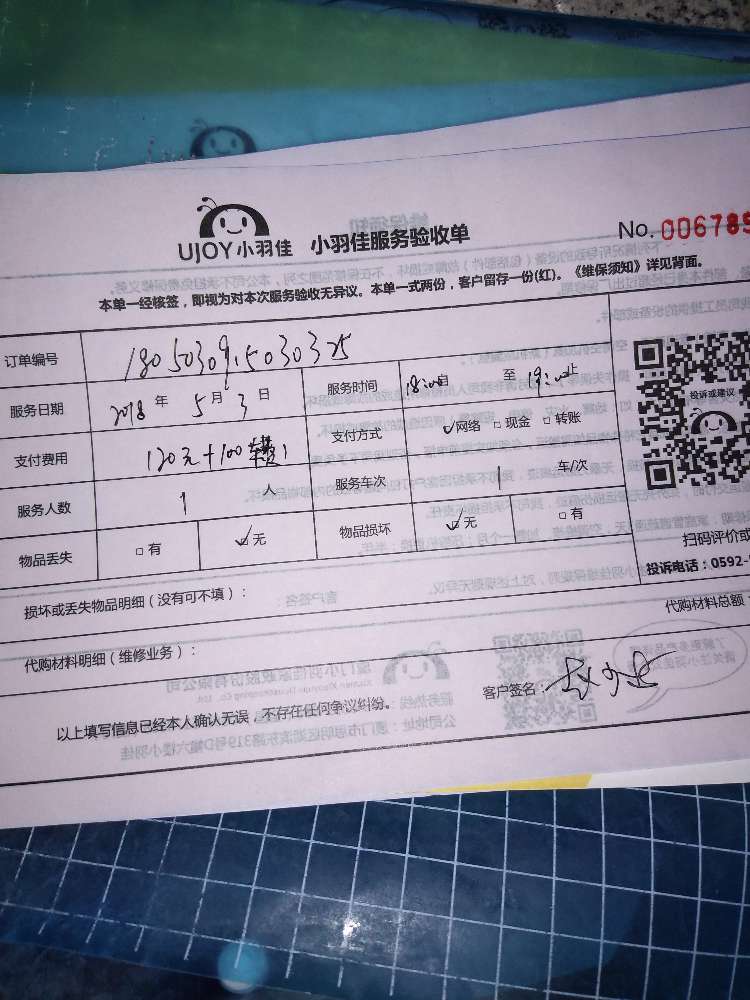 UJOY小羽佳 小羽佳服务验收单 No. 006789
本单一经核签，即视为对本次服务验收无异议。本单一式两份，客户留存一份(红)。《维保须知》详见背面。
订单编号
服务日期 2018 年 5 月 3 日 服务时间 18:00自 至 19:00止
支付费用 120元+100 支付方式 ☑网络 □现金 □转账
服务人数 1 人 服务车次 1 车/次
物品丢失 □有 ☑无 物品损坏 ☑无 □有
投诉或建议
扫码评价或
投诉电话：0592-
损坏或丢失物品明细（没有可不填）：
代购材料明细（维修业务）： 代购材料总额：
以上填写信息已经本人确认无误，不存在任何争议纠纷。 客户签名：